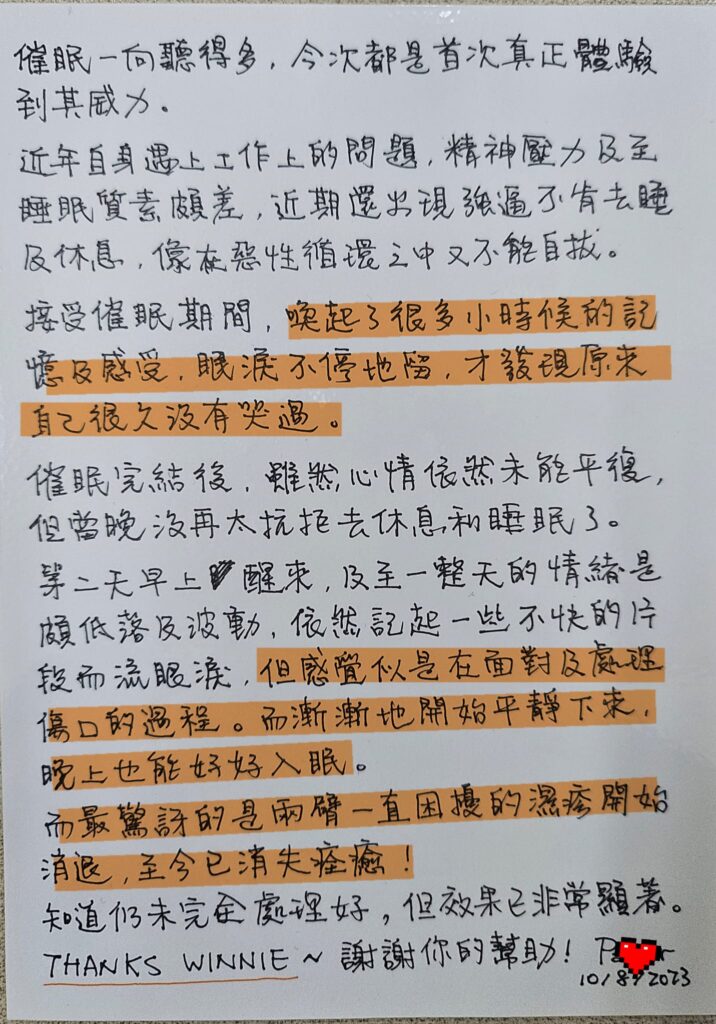 催眠一向聽得多，今次都是首次真正體驗
到其威力。
近年自身遇上工作上的問題，精神壓力及至
睡眠質素頗差，近期還出現強逼不肯去睡
及休息，像在惡性循環之中又不能自拔。
接受催眠期間，喚起了很多小時候的記
憶及感受，眠淚不停地留，才發現原來
自己很久沒有哭過。
催眠完結後，雖然心情依然未能平復，
但當晚沒再太抗拒去休息和睡眠了。
第二天早上醒來，及至一整天的情緒是
頗低落及波動，依然記起一些不快的片
段而流眼淚，但感覺似是在面對及處理
傷口的過程。而漸漸地開始平靜下來，
晚上也能好好入眠。
而最驚訝的是兩臂一直困擾的濕疹開始
消退，至今已消失痊癒！
知道仍未完全處理好，但效果已非常顯著。
THANKS WINNIE ~ 謝謝你的幫助！
10/8/2023